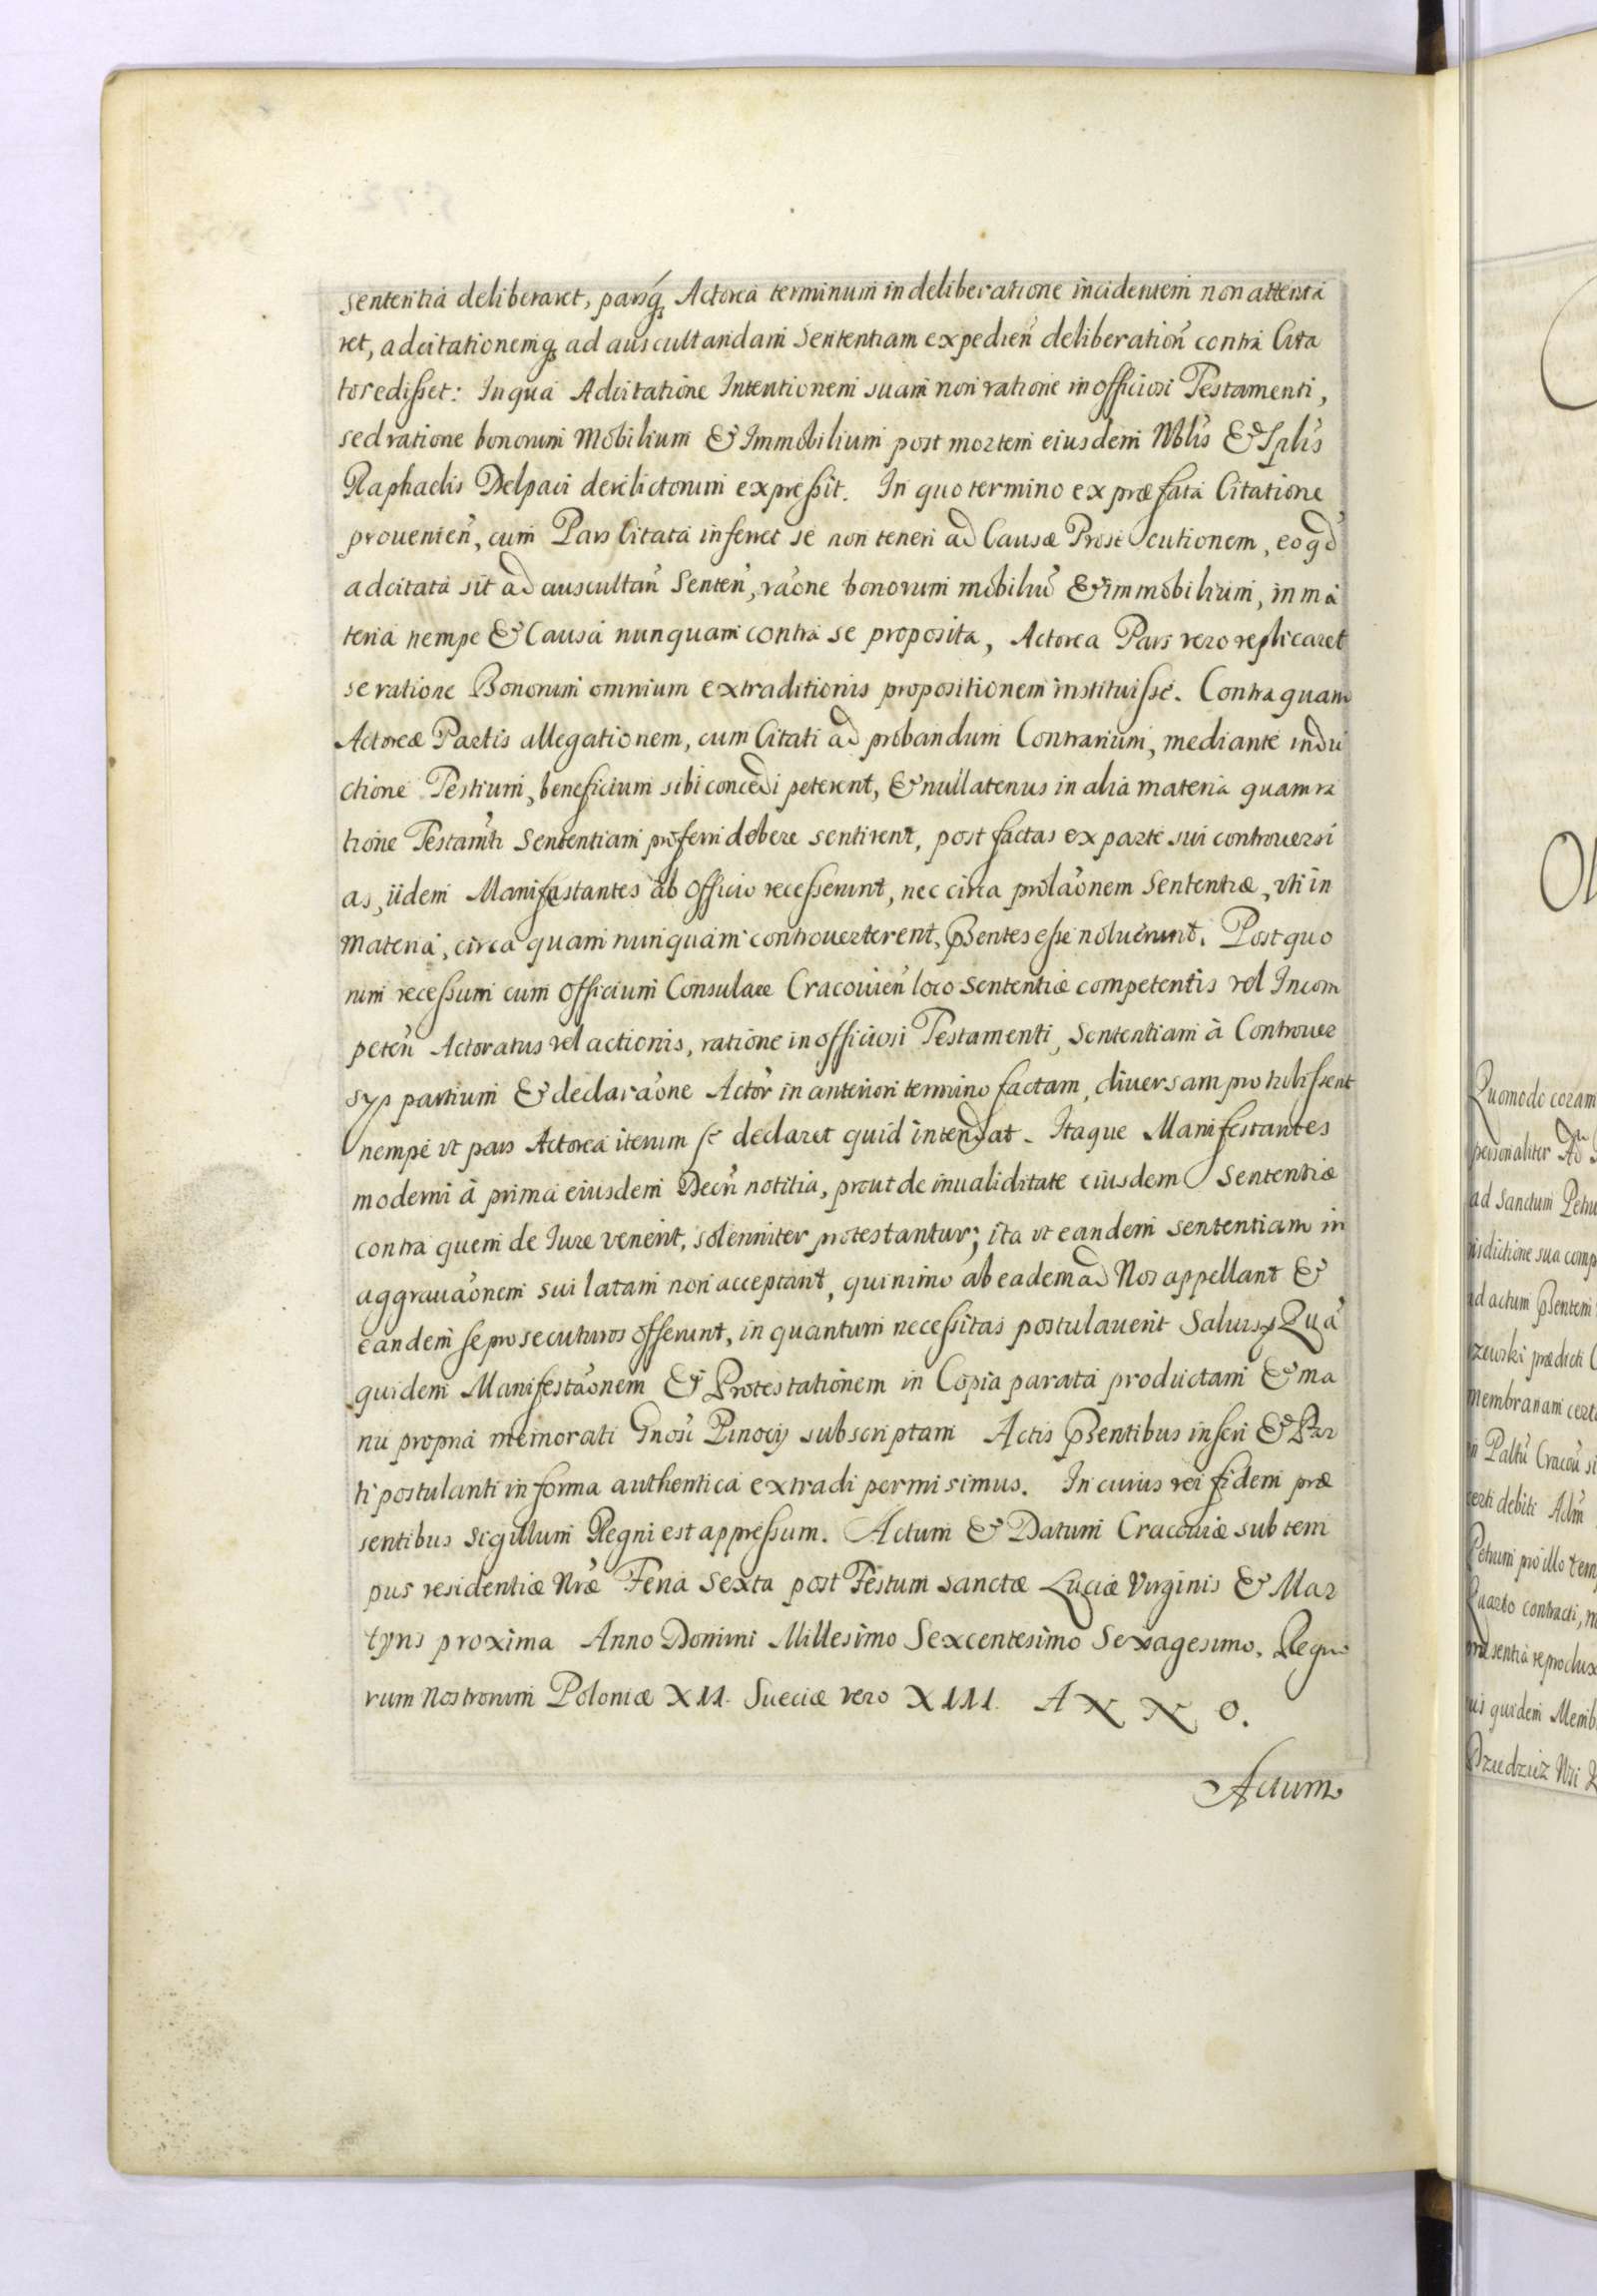 sententia deliberaret, parsq́ꝫ Actorea terminum in deliberatione incidentem non attenta
ret, adcitationemqꝫ ad auscultandam Sententiam expedien̄ deliberation̄ contra Cita
tos edisset: In qua Adcitatione Intentionem suam non ratione inofficiosi Testamenti,
sed ratione bonorum Mobilium & Immobilium post mortem eiusdem Nblis & Splis
Raphaelis Delpaci derelictorum expressit. In quo termino ex præfata Citatione
prouenien̄, cum Pars Citata inferret se non teneri ad Causæ Prosecutionem, eo qd
adcitata sit ad auscultan̄ Senten̄, raōne bonorum mobiliū & immobilium, in ma
teria nempe & Causa nunquam contra se proposita, Actorea Pars vero replicaret
se ratione Bonorum omnium extraditionis propositionem instituisse. Contra quam
Actoreæ Partis allegationem, cum Citati ad probandum Contrarium, mediante indu
ctione Testium, beneficium sibi concedi peterent, & nullatenus in alia materia quam ra
tione Testamti Sententiam proferri debere sentirent, post factas ex parte sui controuersi
as, iidem Manifestantes ab Officio recesserunt, nec circa prolaōnem Sententiæ, vti in
materia, circa quam nunquam controuerterent, pñsentes esse noluerunt. Post quo
rum recessum cum Officium Consulare Cracouien̄ loco Sententiæ competentis vel Incom
peten̄ Actoratus vel actionis, ratione inofficiosi Testamenti, Sententiam à Controuer
sys partium & declaraōne Actor̄ in anteriori termino factam, diuersam protulissent
nempe vt pars Actorea iterum se declaret quid intendat. Itaque Manifestantes
moderni à prima eiusdem Decr̄ notitia, prout de inualiditate eiusdem Sententiæ
contra quem de Iure venerit, solenniter protestantur; ita vt eandem sententiam in
aggrauaōnem sui latam non acceptant, quinimo ab eadem ad Nos appellant &
eandem se prosecuturos offerunt, in quantum necessitas postulauerit Saluis Quā
quidem Manifestaōnem & Protestationem in Copia parata productam & ma
nu propria memorati Gnosi Pinocy subscriptam Actis pñsentibus inseri & Par
ti postulanti in forma authentica extradi permisimus. In cuius rei fidem præ
sentibus Sigillum Regni est appressum. Actum & Datum Cracouiæ sub tem
pus residentiæ Nræ Feria Sexta post Festum Sanctæ Luciæ Virginis & Mar
tyris proxima Anno Domini Millesimo Sexcentesimo Sexagesimo. Regno
rum Nostrorum Poloniæ XII. Sueciæ vero XIII. A N N O.
Actum
Quomodo coram
personaliter
ad Sanctum Petru
risdictione sua comp
ad actum pñsentem
czewski prædicti
membranam certi
in Paltū Cracou si
certi debiti
Petrum pro illo tem
Quarto contracti,
præsentia reprodux
ius quidem Memb